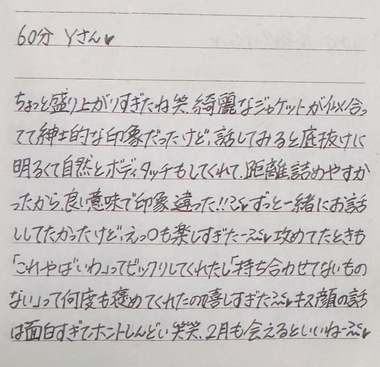 60分 Yさん♥
ちょっと盛り上がりすぎたね笑 綺麗なジャケットが似合っ
てて紳士的な印象だったけど、話してみると底抜けに
明るくて自然とボディタッチもしてくれて、距離詰めやすか
ったから、良い意味で印象違った!!♥ずっと一緒にお話
ししてたかったけど、えっ〇も楽しすぎたー♥攻めてたときも
「これやばいわ」ってビックリしてくれたし「持ち合わせてないもの
ない」って何度も褒めてくれたの嬉しすぎた♥キス顔の話
は面白すぎてホントしんどい笑笑、2月も会えるといいねー♥